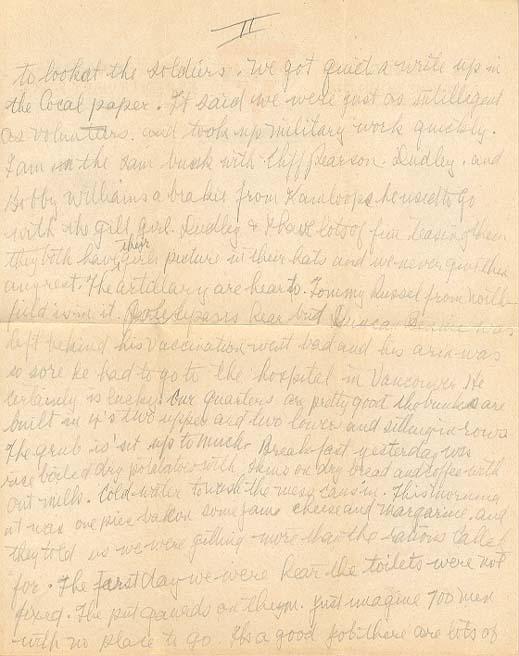 II
to look at the soldiers. We got quiet a write up in
the local paper. It said we were just as intilegent
as volunters. and took up military work quickly.
I am in the sam bunk with Cliff Pearson. Dudley. and
Bobby Williams a brakie from Kamloops he used to go
with girl. Dudley & I have lots of fun teasing them
they both have their girls picture in their hats and we never give them
any rest. The artilary are hear to. Tommy Russel from north
field is in it. is hear but Duncan
left behind his vaccination went bad and his arm was
so sore he had to go to the hospital in Vancouver He
certainly is lucky. Our quarters are pretty good the bunks are
built in 4's two upper and two lower and in rows
The grub is'nt up to much. Breakfast yesterday was
boiled dry potatoe with skins on dry bread and coffe with
out milk. Cold water to wash the mess cans in. This morning
it was one pice bakon some jam cheese and margarine. and
they told us we were getting more than the rations called
for. The farst day we were hear the toilets were not
fixed. The put gaurds on them. Just imagine 700 men
with no place to go. Its a good job there are lots of